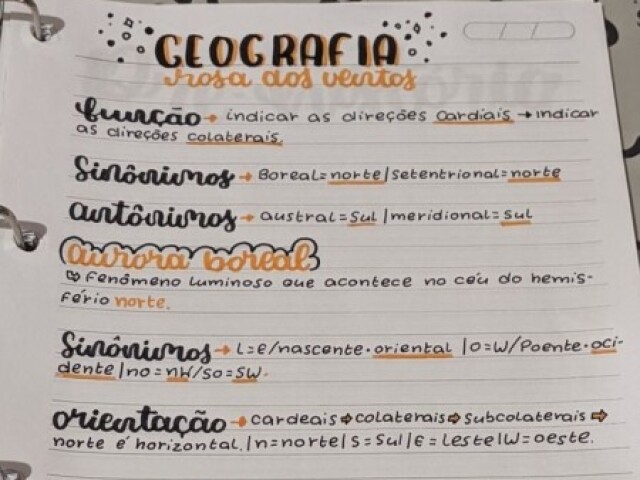 GEOGRAFIA
rosa dos ventos
função → indicar as direções cardiais → indicar
as direções colaterais.
Sinônimos → Boreal=norte|setentrional=norte
antônimos → austral=sul|meridional=sul
aurora boreal
↳ Fenômeno luminoso que acontece no céu do hemis-
fério norte.
Sinônimos → L=E/nascente·oriental |O=W/Poente·oci-
dente|no=nW/so=SW.
orientação → cardeais ⇨ colaterais ⇨ subcolaterais ⇨
norte é horizontal.|n=norte|S=Sul|E=Leste|W=oeste.